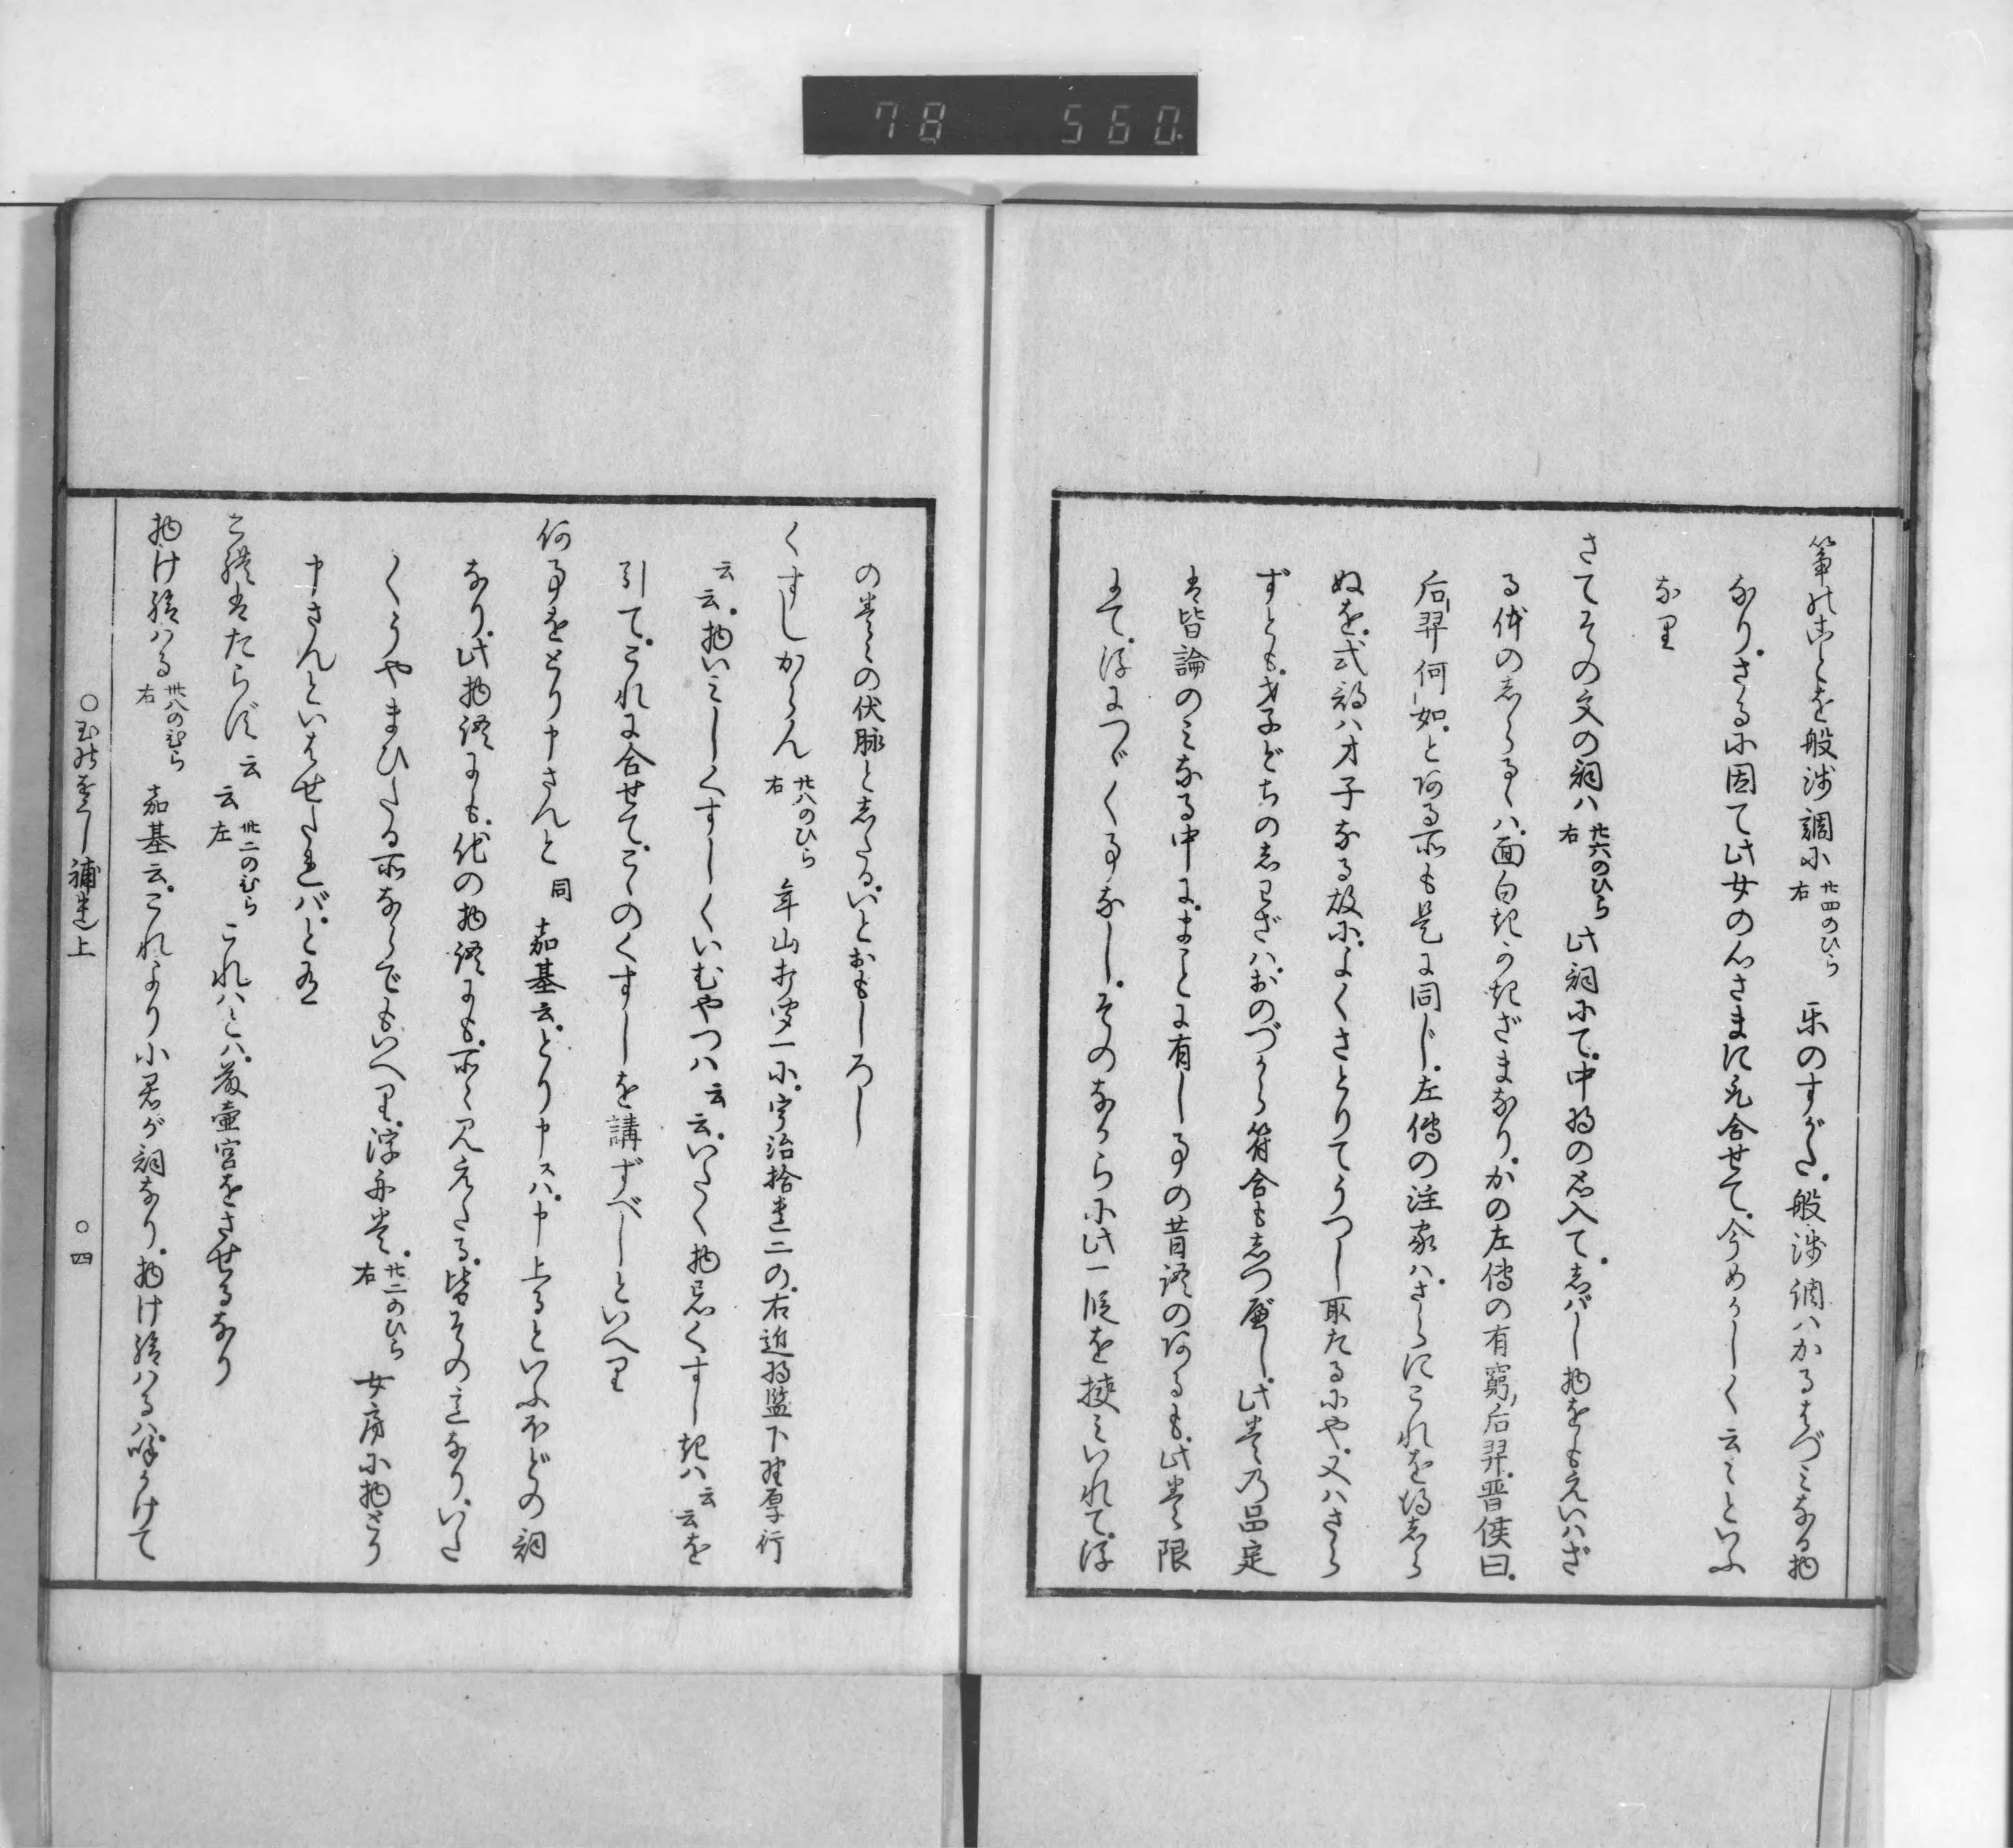 78 560
箏のことを般渉調に 廿四のひら右 楽のすがた。般渉調ハかるはづミなる物
なり。さるに因て此女の心さまに見合せて。今めかしく云ミといふ
なり
さてその文の詞ハ 廿六のひら右 此詞にて。中将の思入て。しバし物をもえいハざ
る体のしらるゝハ。面白きかきざまなり。かの左傳の有窮后羿。晋侯曰。
后羿何如。とある所も是に同じ。左傳の注家ハ。さらにこれを得しら
ぬを。式部ハ才子なる故に。よくさとりてうつし取たるにや。又ハさら
ずとも。才子どちのしわざハ。おのづから符合もしつ べし。此巻乃品定
は皆論のミなる中に。まことに有し事の昔語のあるも。此巻に限
にて。浮につゞくる事なし。そのなからに此一段を挟ミいれて。浮
の巻々の伏脉としたる。いとおもしろし
くすしからん 廿八のひら右 年山打聞一に。宇治拾遺二の。右近将監下野厚行
云云。物いミしくすしくいむやつハ云云。いたく物忌くすしきハ云云を
引て。これに合せて。こゝのくすしを講ずべしといへり
何事をとり申さんと 同 嘉基云。とり申スハ。申上るといふほどの詞
なり。此物語にも。他の物語にも。所々見えたる。皆その意なり。いた
くうやまひたる所ならでもいへり。浮舟巻。廿二のひら右 女房に物とり
申さんといはせたれバ。と有
こ祿はたらず 云云 卅二のひら左 これハとハ。藤壷宮をさせるなり
物け給ハる 卅八のひら右 嘉基云。これより小君が詞なり。物け給ハるハ。呼かけて
○玉のをぐし補遺上 ○四